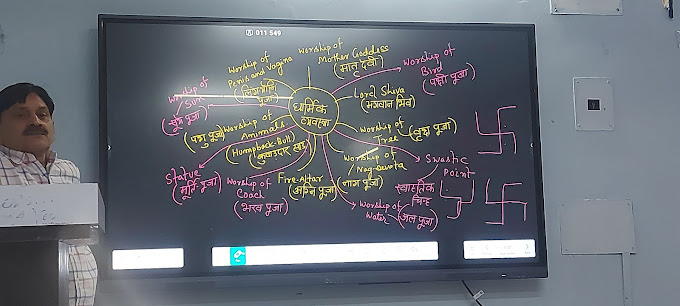 011 549
धार्मिक
व्यवस्था
Worship of
Mother Goddess
(मातृ देवी)
Worship of
Bird
(पक्षी पूजा)
Lord Shiva
भगवान शिव
Worship of
Tree
(वृक्ष पूजा)
Swastic
Point
स्वास्तिक
चिन्ह
Worship of
Nag-Devata
(नाग पूजा)
Worship of
Water
(जल पूजा)
Fire-Altar
(अग्नि पूजा)
Worship of
Coach
Statue
(मूर्ति पूजा)
Worship of
Animals
(पशु पूजा)
Humpback-Bull
Worship of
Sun
(सूर्य पूजा)
Worship of
Penis and Vagina
पूजा)